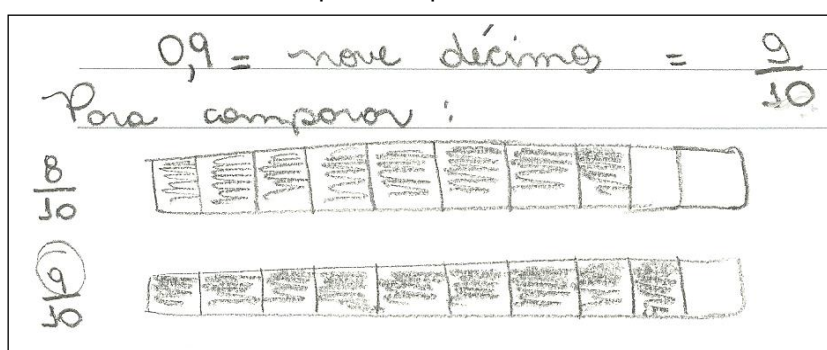 0,9 = nove décimos = 9/10
Para comparar :
8/10
9/10